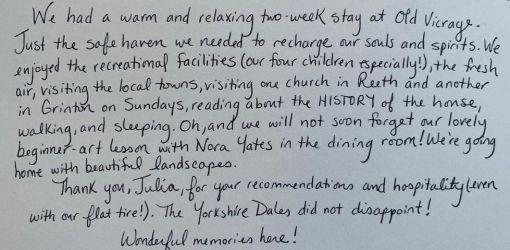 We had a warm and relaxing two-week stay at Old Vicrage.
Just the safe haven we needed to recharge our souls and spirits. We
enjoyed the recreational facilities (our four children especially!), the fresh
air, visiting the local towns, visiting one church in Reeth and another
in Grinton on Sundays, reading about the HISTORY of the house,
walking, and sleeping. Oh, and we will not soon forget our lovely
beginner-art lesson with Nora Yates in the dining room! We're going
home with beautiful landscapes.
Thank you, Julia, for your recommendations and hospitality (even
with our flat tire!). The Yorkshire Dales did not disappoint!
Wonderful memories here!